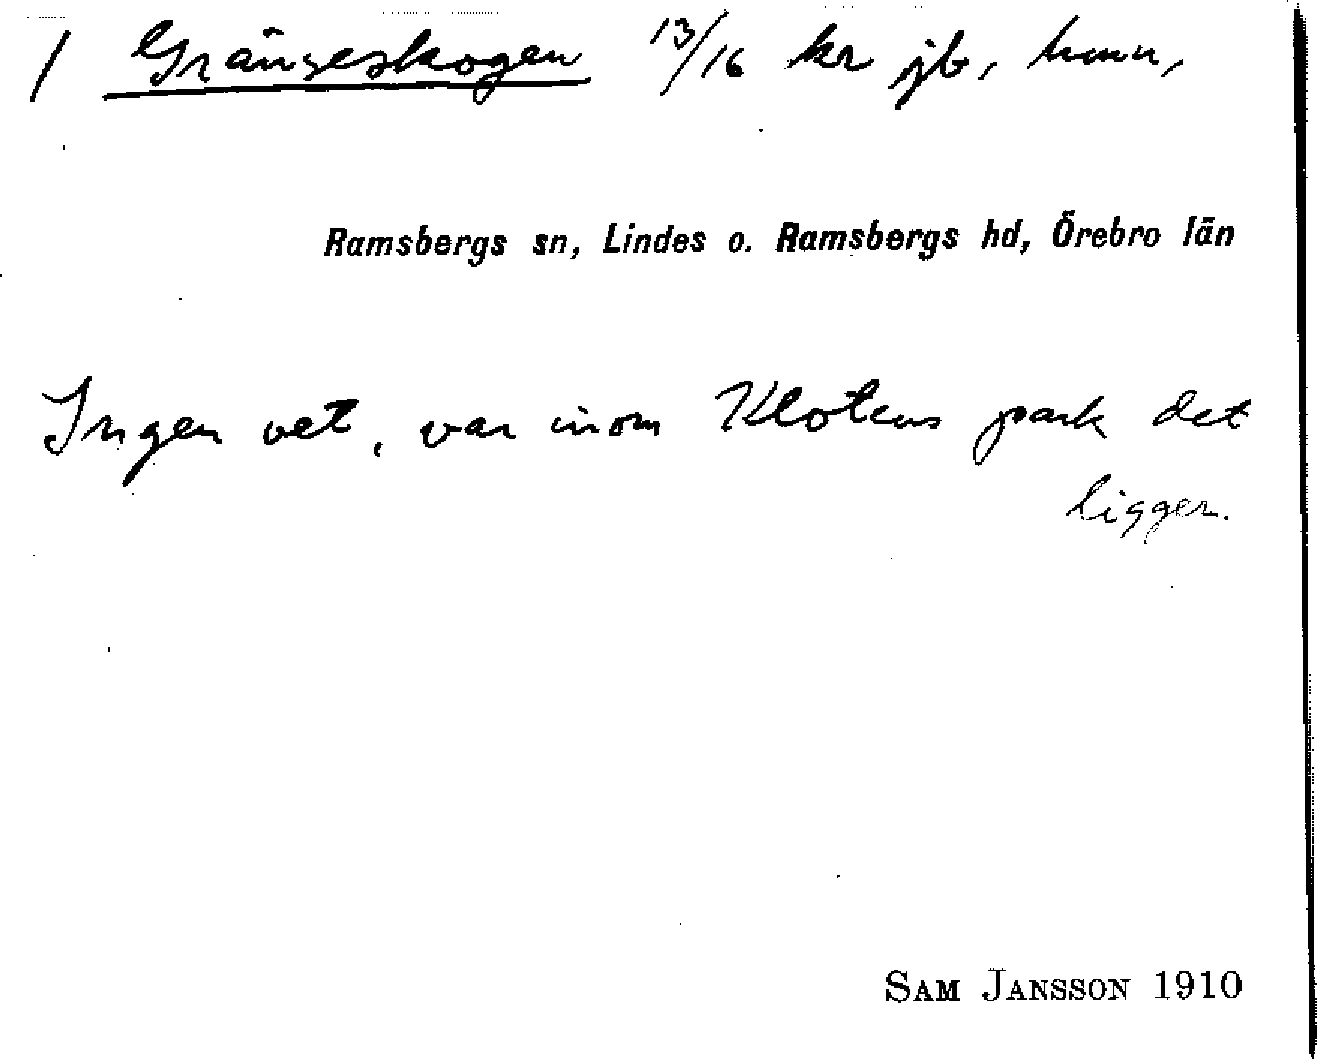 / Gränseskogen 13/16 kr jb, hmn,
Ramsbergs sn, Lindes o. Ramsbergs hd, Örebro län
Ingen vet, var inom Klotens park det
ligger.
SAM JANSSON 1910